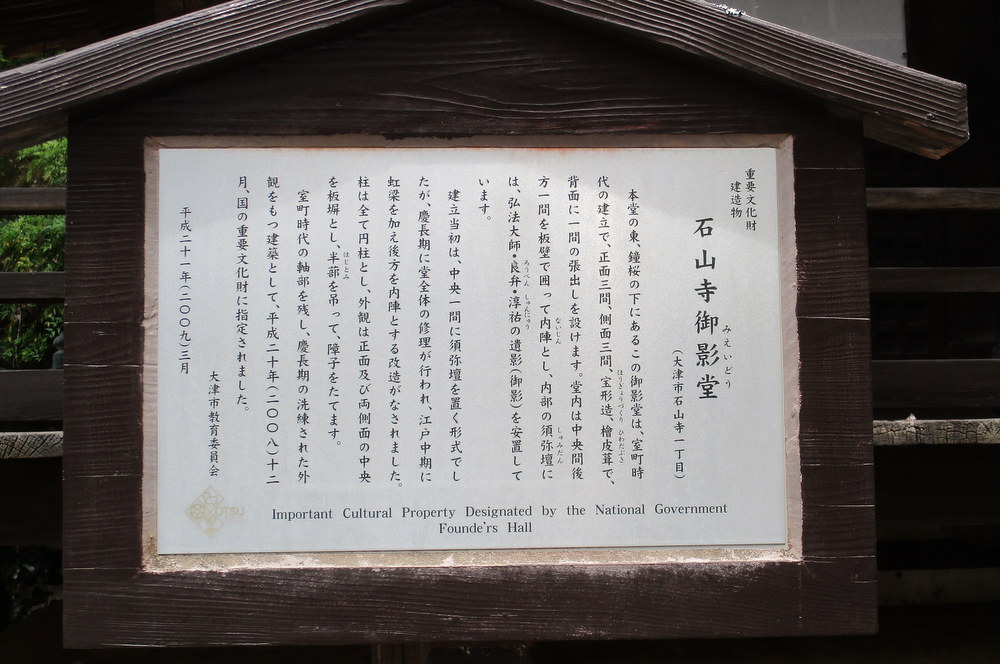 重要文化財
建造物
石山寺御影堂
みえいどう
(大津市石山寺一丁目)
本堂の東、鐘桜の下にあるこの御影堂は、室町時
代の建立で、正面三間、側面三間、宝形造、檜皮葺で、
ほうぎょうづくり ひわだぶき
背面に一間の張出しを設けます。堂内は中央間後
方一間を板壁で囲って内陣とし、内部の須弥壇に
ないじん しゅみだん
は、弘法大師・良弁・淳祐の遺影(御影)を安置して
ろうべん しゅんにゅう
います。
建立当初は、中央一間に須弥壇を置く形式でし
たが、慶長期に堂全体の修理が行われ、江戸中期に
虹梁を加え後方を内陣とする改造がなされました。
柱は全て円柱とし、外観は正面及び両側面の中央
を板塀とし、半蔀を吊って、障子をたてます。
はじとみ
室町時代の軸部を残し、慶長期の洗練された外
観をもつ建築として、平成二十年(二〇〇八)十二
月、国の重要文化財に指定されました。
大津市教育委員会
平成二十一年(二〇〇九)三月
OTSU
Important Cultural Property Designated by the National Government
Founde'rs Hall